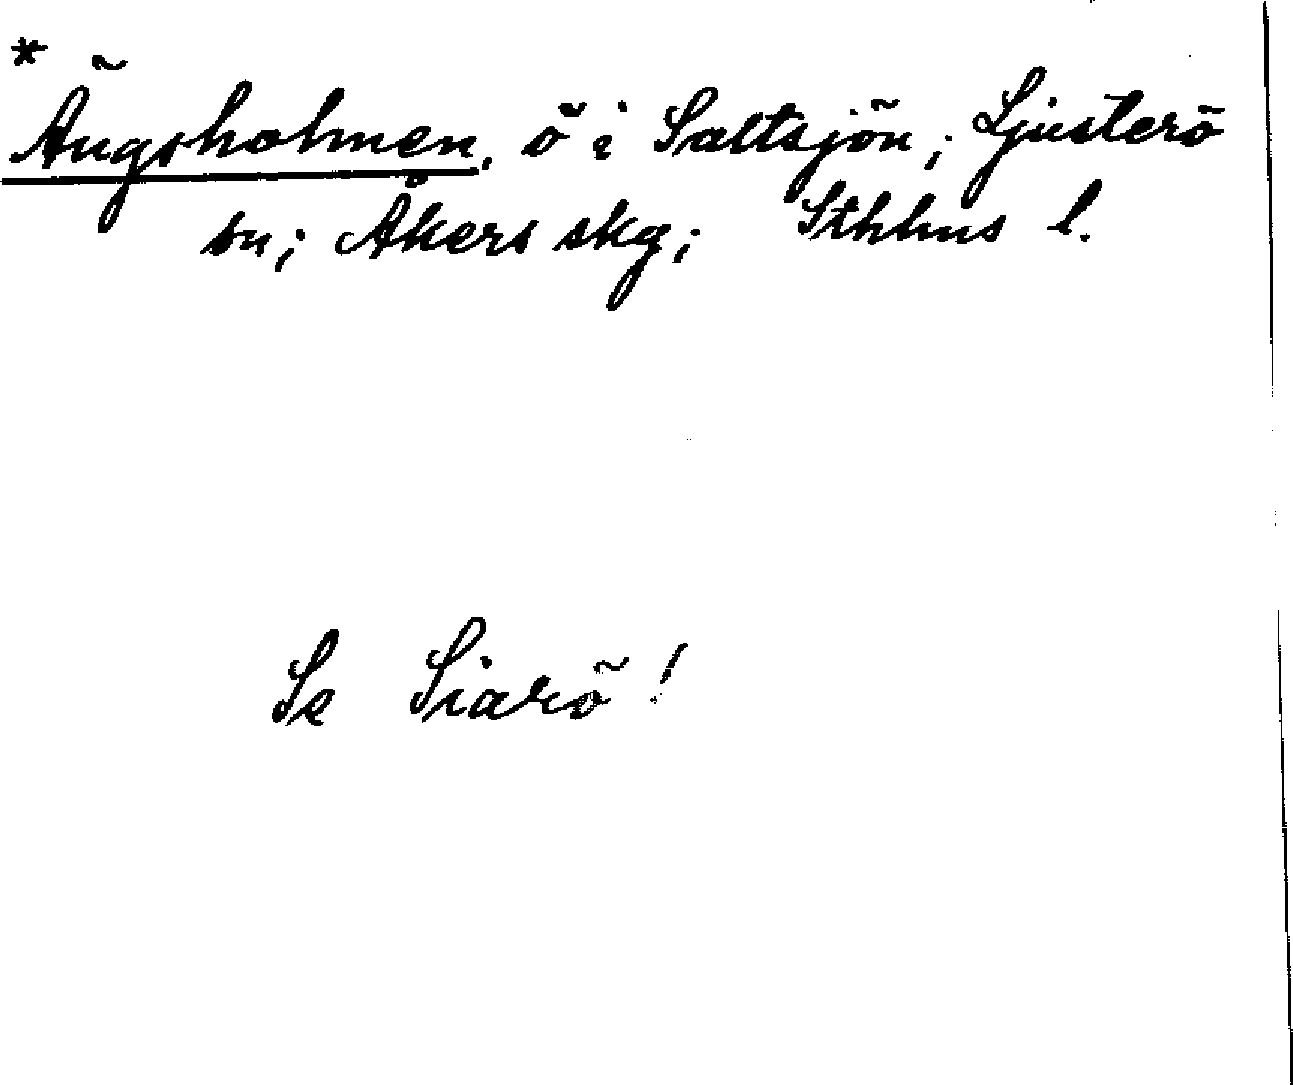 * Ängsholmen, ö i Saltsjön; Ljusterö
sn; Åkers skg; Sthlms l.
Se Siarö!